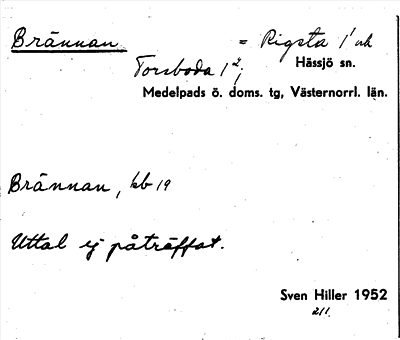 Brännan = Rigsta 1'
Torsboda 1²; Hässjö sn.
Medelpads ö. doms. tg, Västernorrl. län.
Brännan, kb 19
Uttal ej påträffat.
Sven Hiller 1952